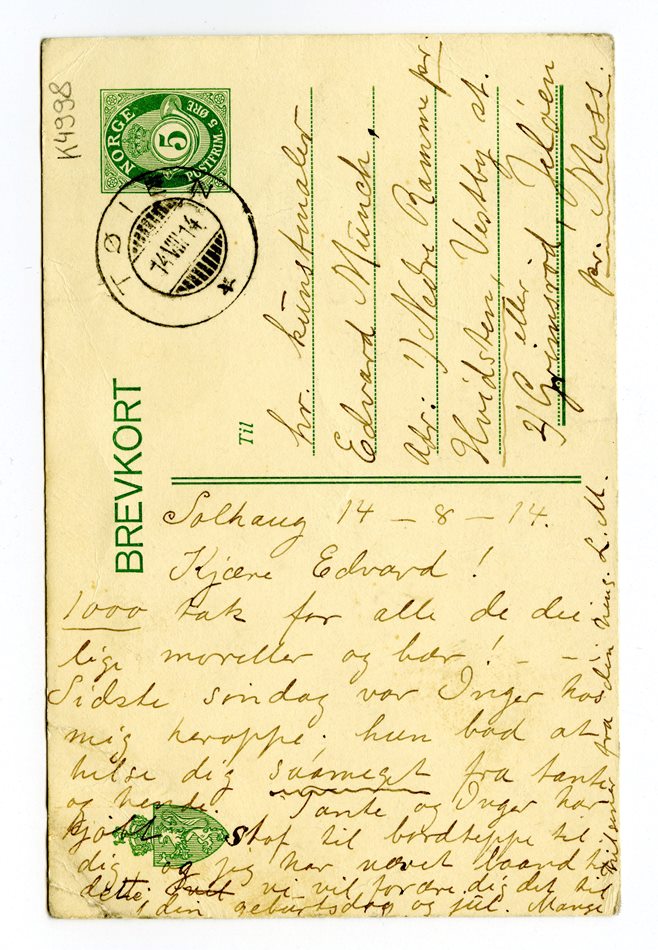 K4998
NORGE
5
POSTFRIM. 5 ØRE
TØIEN
14 VIII 14
BREVKORT
Til
hr. kunstmaler
Edvard Münch,
Adr: 1) Nedre Ramme pr.
Hvidsten, Vestby st.
eller
2) Grimsrød, Jeløen
pr. Moss.
Solhaug 14 – 8 – 14.
Kjære Edvard!
1000 tak for alle de dei
lige moreller og bær! – –
Sidste søndag var Inger hos
mig heroppe. hun bad at
hilse dig saameget fra tante
og hende. Tante og Inger har
kjøbt stof til bordteppe til
dig og jeg har vævet baand til
dette vi vil forære dig det til
din geburtsdag og jul. Mange
hilsener fra din heng. L. M.